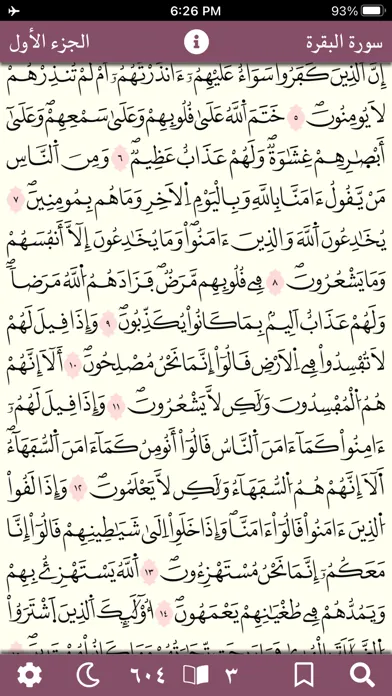 6:26 PM 93%
سورة البقرة
الجزء الأول
إِنَّ اَلذِينَ كَفَرُواْ سَوَآءٌ عَلَيْهِمُۥٓ ءَآنذَرْتَهُمُۥٓ أَمْ لَمْ تُنذِرْهُمْ
لَا يُومِنُونَۖ ٥ خَتَمَ اَللَّهُ عَلَىٰ قُلُوبِهِمْ وَعَلَىٰ سَمْعِهِمْۖ وَعَلَىٰٓ
أَبْصَٰرِهِمْ غِشَٰوَةٞۖ وَلَهُمْ عَذَابٌ عَظِيمٞۖ ٦ وَمِنَ اَلنَّاسِ
مَنْ يَّقُولُ ءَامَنَّا بِاللَّهِ وَبِالْيَوْمِ اِلَاخِرِ وَمَا هُم بِمُومِنِينَۖ ٧
يُخَٰدِعُونَ اَللَّهَ وَالذِينَ ءَامَنُواْۖ وَمَا يُخَٰدِعُونَ إِلَّآ أَنفُسَهُمْ
وَمَا يَشْعُرُونَۖ ٨ فِے قُلُوبِهِم مَّرَضٞ فَزَادَهُمُ اُللَّهُ مَرَضاٗۖ
وَلَهُمْ عَذَابٌ اَلِيمُۢ بِمَا كَانُواْ يُكَذِّبُونَۖ ٩ وَإِذَا قِيلَ لَهُمْ
لَا تُفْسِدُواْ فِے اِلَارْضِ قَالُوٓاْ إِنَّمَا نَحْنُ مُصْلِحُونَۖ ١٠ أَلَآ إِنَّهُمْ
هُمُ اُلْمُفْسِدُونَ وَلَٰكِن لَّا يَشْعُرُونَۖ ١١ وَإِذَا قِيلَ لَهُمُۥٓ
ءَامِنُواْ كَمَآ ءَامَنَ اَلنَّاسُ قَالُوٓاْ أَنُومِنُ كَمَآ ءَامَنَ اَلسُّفَهَآءُۖ
أَلَآ إِنَّهُمْ هُمُ اُلسُّفَهَآءُ وَلَٰكِن لَّا يَعْلَمُونَۖ ١٢ وَإِذَا لَقُواْ
اُلذِينَ ءَامَنُواْ قَالُوٓاْ ءَامَنَّاۖ وَإِذَا خَلَوِاْ اِلَىٰ شَيَٰطِينِهِمْ قَالُوٓاْ إِنَّا
مَعَكُمُۥٓ إِنَّمَا نَحْنُ مُسْتَهْزِءُونَۖ ١٣ اَللَّهُ يَسْتَهْزِئُ بِهِمْ
وَيَمُدُّهُمْ فِے طُغْيَٰنِهِمْ يَعْمَهُونَۖ ١٤ أُوْلَٰٓئِكَ اَلذِينَ اَشْتَرَوُاْ
٣
٦٠٤